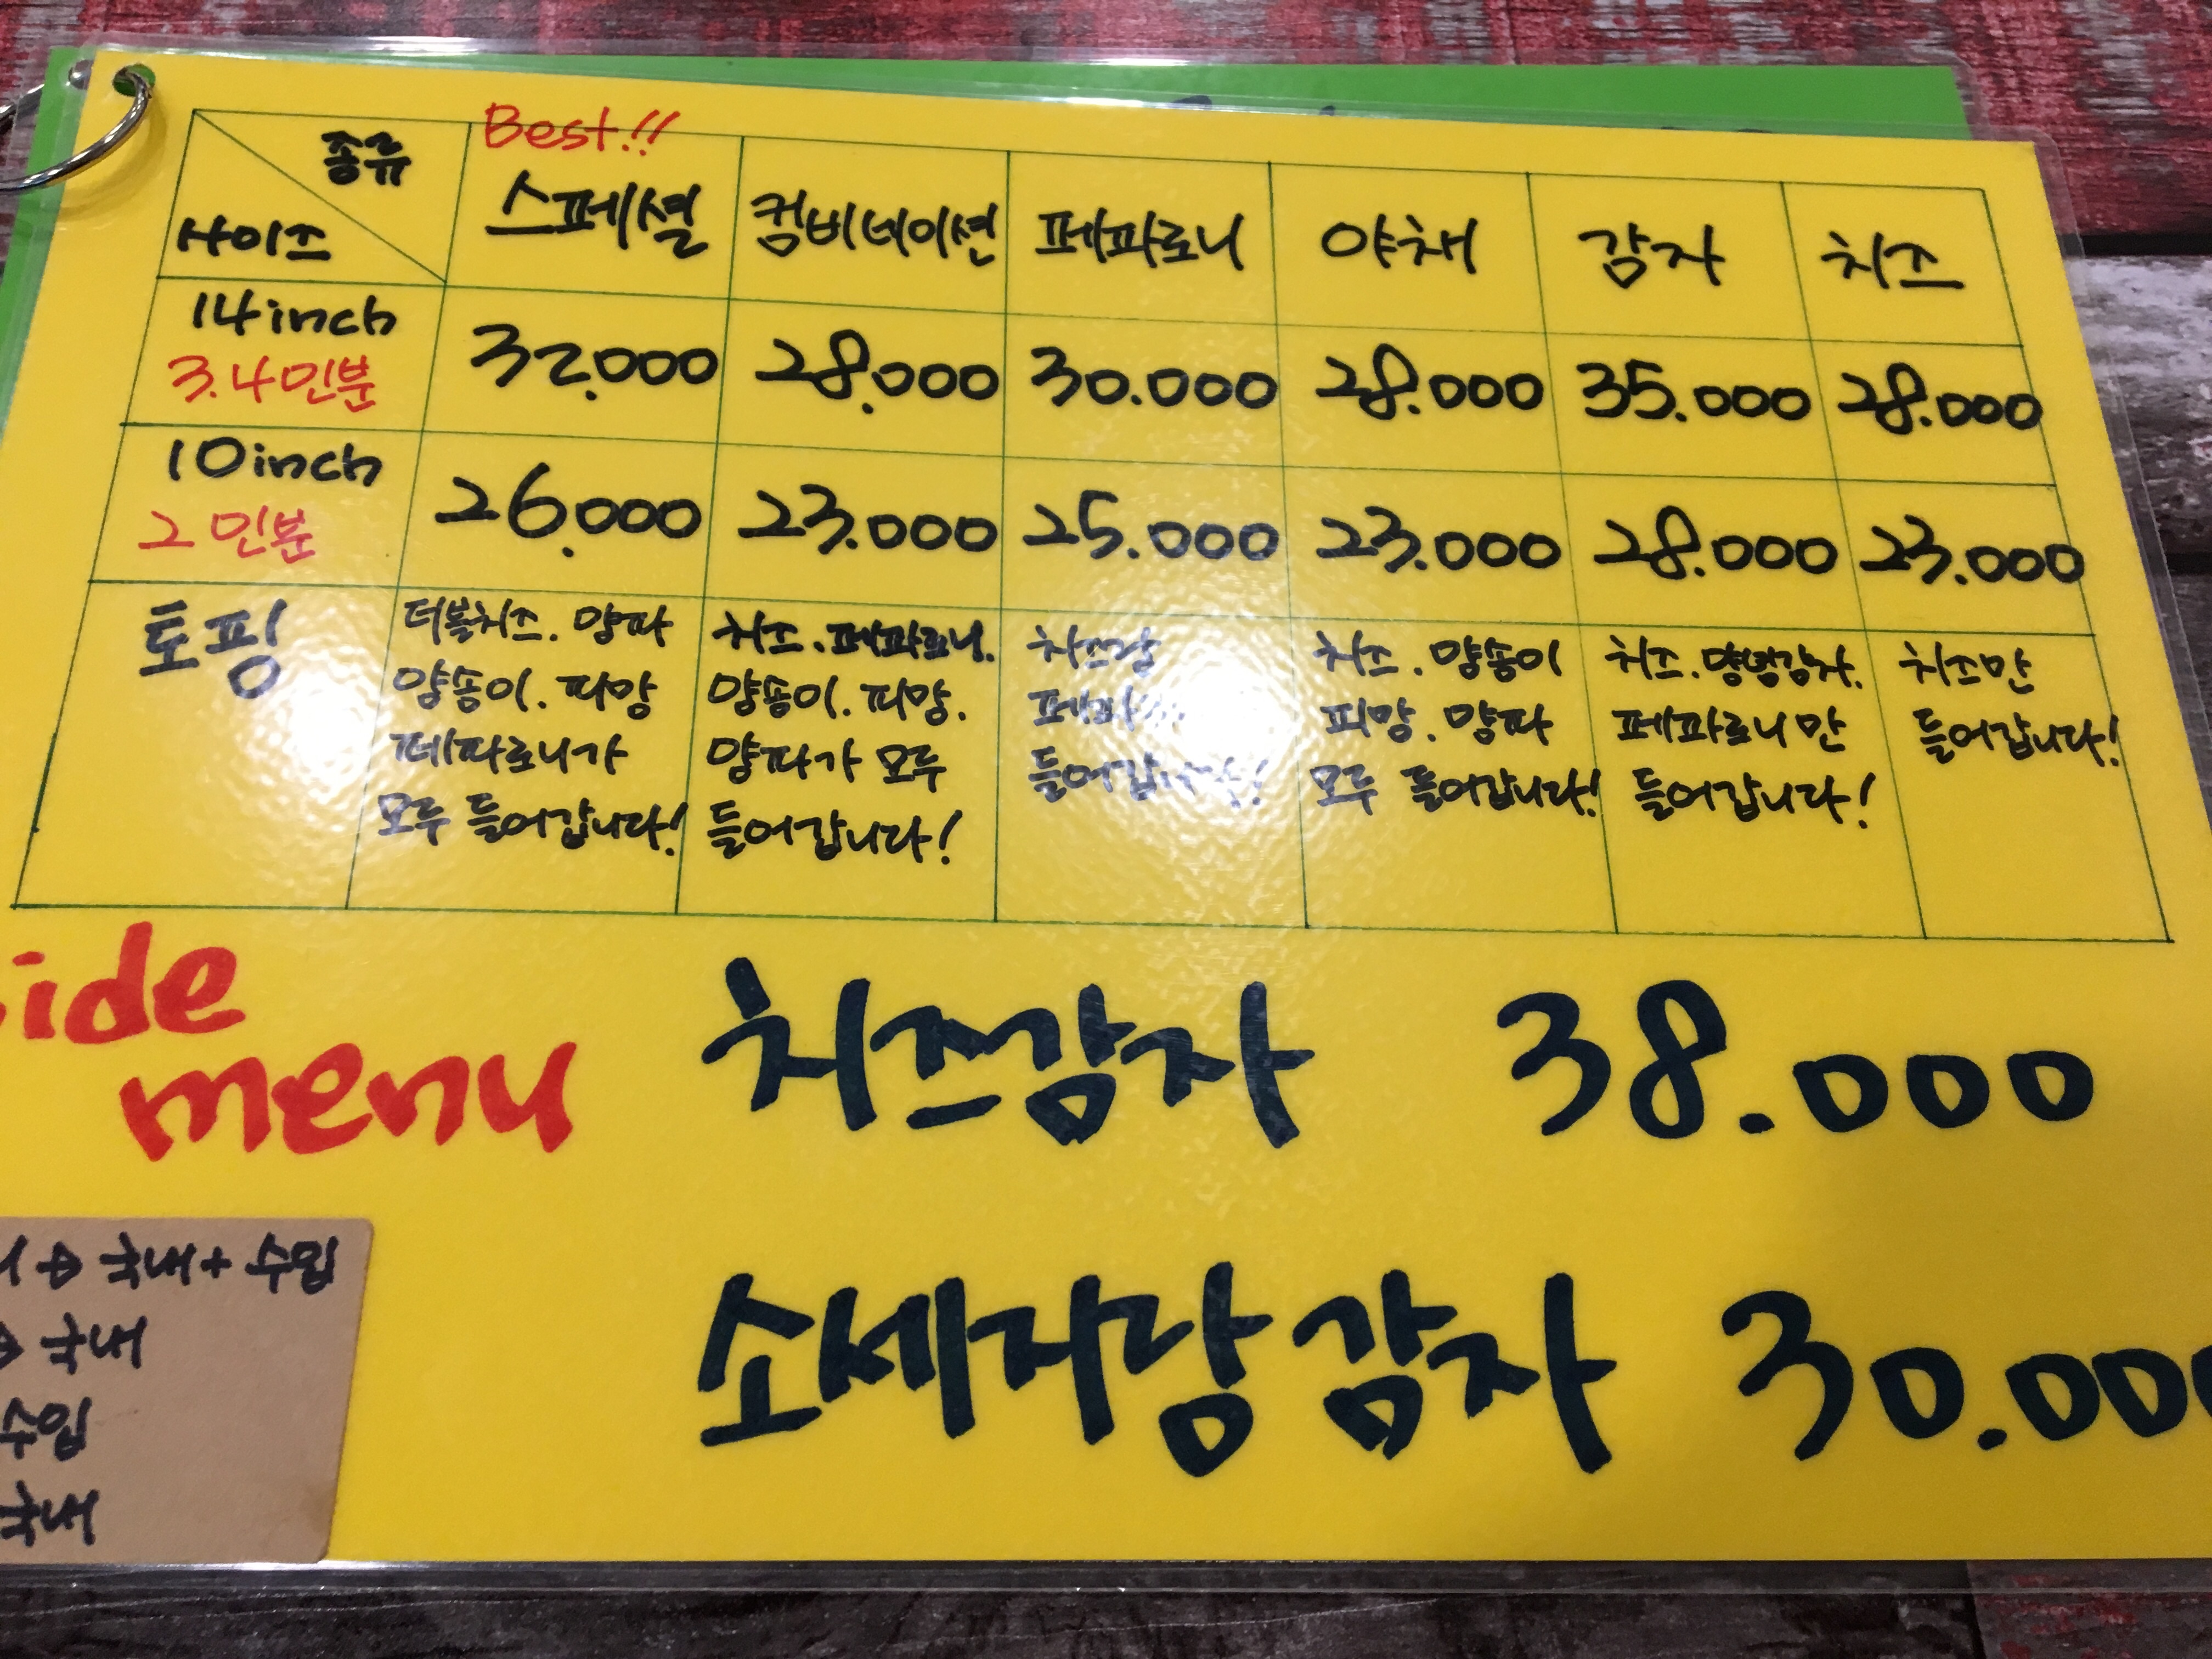 Best!!
종류 스페셜 컴비네이션 페파로니 야채 감자 치즈
사이즈
14inch 32.000 28.000 30.000 28.000 35.000 28.000
3.4인분
10inch 26.000 23.000 25.000 23.000 28.000 23.000
2인분
토핑
더블치즈. 양파
양송이. 피망
페파로니가
모두 들어갑니다!
치즈.페파로니.
양송이. 피망.
양파가 모두
들어갑니다!
치즈랑
들어갑니다!
치즈. 양송이
피망. 양파
모두 들어갑니다!
치즈.양념감자.
페파로니만
들어갑니다!
치즈만
들어갑니다!
side
menu
치즈감자 38.000
소세지랑 감자 30.000
→ 국내+수입
→ 국내
수입
국내